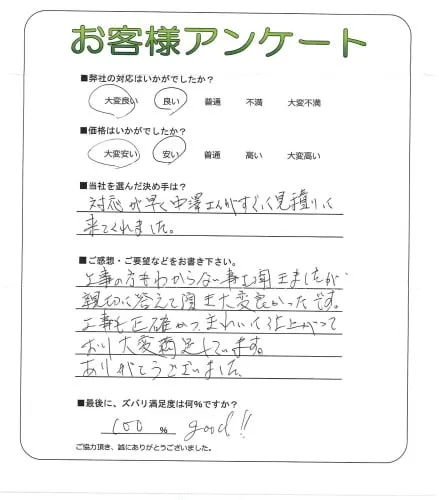 お客様アンケート
■弊社の対応はいかがでしたか?
大変良い 良い 普通 不満 大変不満
■価格はいかがでしたか?
大変安い 安い 普通 高い 大変高い
■当社を選んだ決め手は?
対応が早く中澤さんがすぐに見積りに
来てくれました。
■ご感想・ご要望などをお書き下さい。
工事の方もわからない事も聞きましたが
親切に答えて頂き大変良かったです。
工事も正確かつ、きれいに仕上がって
おり大変満足しています。
ありがとうございました。
■最後に、ズバリ満足度は何%ですか?
100 % good!!
ご協力頂き、誠にありがとうございました。